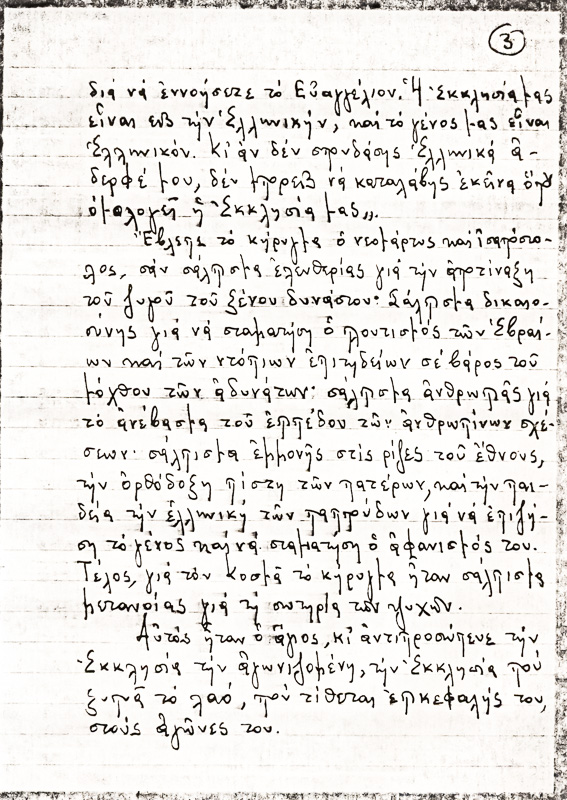 3
διά νά ἐννοήσετε τό Εὐαγγέλιον. Ἡ Ἐκκλησία μας
εἶναι εἰς τήν Ἑλληνικήν, καί τό γένος μας εἶναι
Ἑλληνικόν. Κι ἄν δέν σπουδάσης Ἑλληνικά ἀ-
δερφέ μου, δέν μπορεῖς νά καταλάβης ἐκεῖνα ὅπου
ὁμολογεῖ ἡ Ἐκκλησία μας„.
Ἔβλεπε τό κήρυγμα ὁ νεομάρτυς καί ἰσαπόστο-
λος, σάν σάλπισμα ἐλευθερίας γιά τήν ἀποτίναξη
τοῦ ζυγοῦ τοῦ ξένου δυνάστου· Σάλπισμα δικαιο-
σύνης γιά νά σταματήση ὁ πλουτισμός τῶν Ἑβραί-
ων καί τῶν ντόπιων ἐπιτηδείων σέ βάρος τοῦ
μόχθου τῶν ἀδυνάτων· σάλπισμα ἀνθρωπιᾶς γιά
τό ἀνέβασμα τοῦ ἐπιπέδου τῶν ἀνθρωπίνων σχέ-
σεων· σάλπισμα ἐμμονῆς στίς ρίζες τοῦ ἔθνους,
τήν ὀρθόδοξη πίστη τῶν πατέρων, καί τήν παι-
δεία τήν ἑλληνική τῶν παππούδων γιά νά ἐπιζή-
ση τό γένος καί νά σταματήση ὁ ἀφανισμός του.
Τέλος, γιά τόν Κοσμᾶ τό κήρυγμα ἦταν σάλπισμα
μετανοίας γιά τή σωτηρία τῶν ψυχῶν.
Αὐτός ἦταν ὁ ἅγιος, κι ἀντιπροσώπευε τήν
Ἐκκλησία τήν ἀγωνιζομένη, τήν Ἐκκλησία πού
ξυπνᾶ τό λαό, πού τίθεται ἐπικεφαλής του,
στούς ἀγῶνες του.